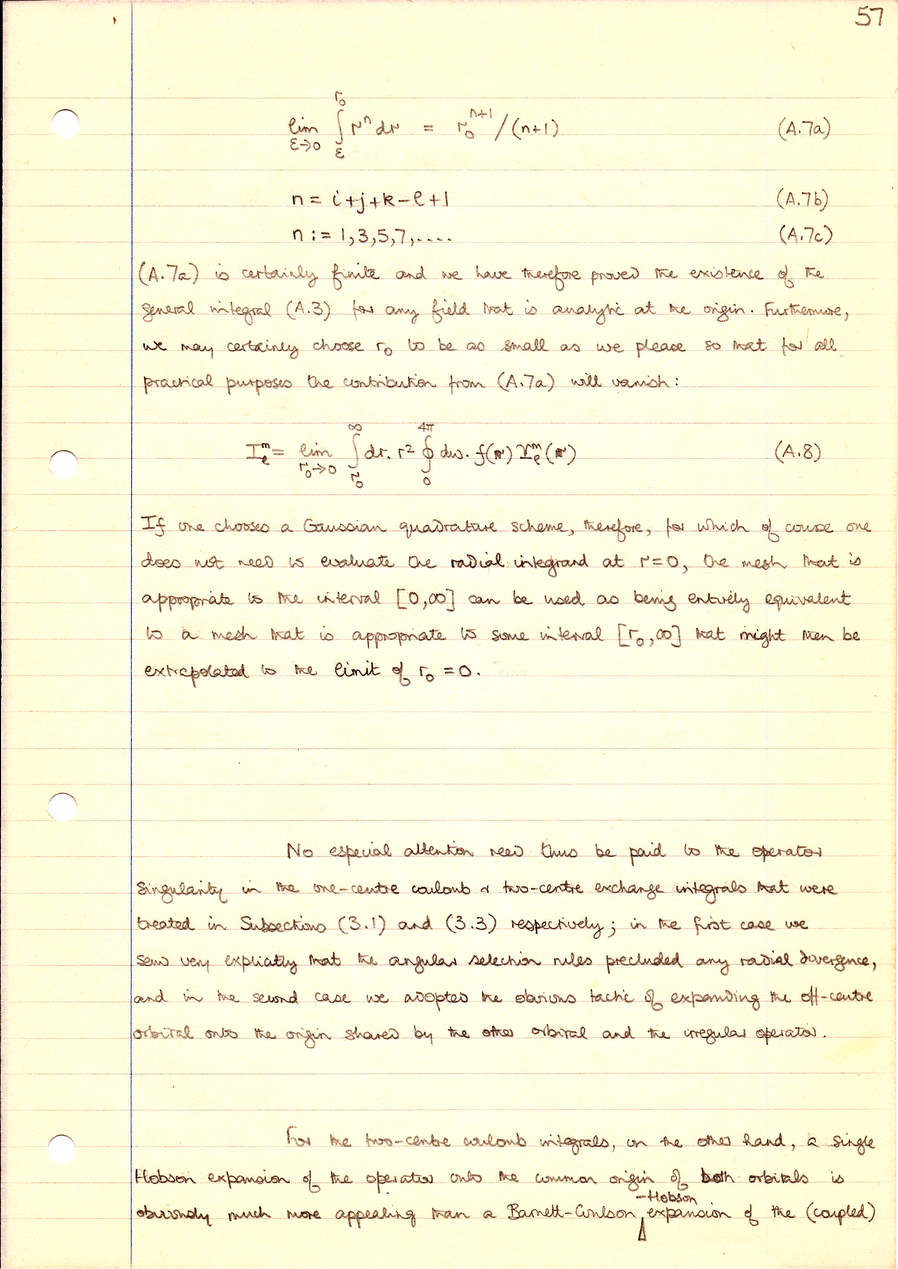 57
lim ε→0 ∫_ε^{r₀} rⁿ dr = r₀^{n+1}/(n+1) (A.7a)
n = i+j+k-ℓ+1 (A.7b)
n := 1,3,5,7,.... (A.7c)
(A.7a) is certainly finite and we have therefore proved the existence of the
general integral (A.3) for any field that is analytic at the origin. Furthermore,
we may certainly choose r₀ to be as small as we please so that for all
practical purposes the contribution from (A.7a) will vanish:
I_ℓ^m = lim r₀→0 ∫_{r₀}^∞ dr. r² ∮_0^{4π} dω. f(r) Y_ℓ^m(r) (A.8)
If one chooses a Gaussian quadrature scheme, therefore, for which of course one
does not need to evaluate the radial integrand at r=0, the mesh that is
appropriate to the interval [0,∞] can be used as being entirely equivalent
to a mesh that is appropriate to some interval [r₀,∞] that might then be
extrapolated to the limit of r₀ = 0.
No especial attention need thus be paid to the operator
singularity in the one-centre coulomb & two-centre exchange integrals that were
treated in Subsections (3.1) and (3.3) respectively; in the first case we
saw very explicitly that the angular selection rules precluded any radial divergence,
and in the second case we adopted the obvious tactic of expanding the off-centre
orbital onto the origin shared by the other orbital and the irregular operator.
For the two-centre coulomb integrals, on the other hand, a single
Hobson expansion of the operator onto the common origin of both orbitals is
obviously much more appealing than a Barnett-Coulson-Hobson expansion of the (coupled)